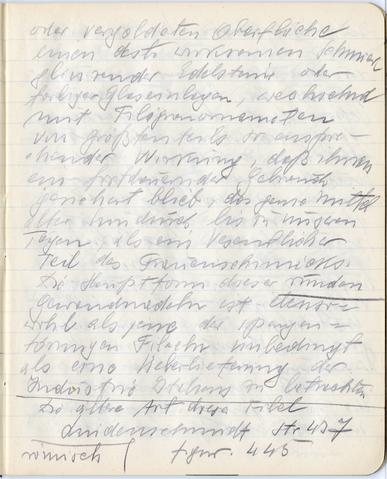 oder vergoldeten Oberfläche
einen desto wirksameren Schmuck
glänzender Edelsteine oder
farbiger Glaseinlagen, wechselnd
mit Filigranornamenten
von größtenteils so anspre-
chender Wirkung, daß ihnen
ein fortdauernder Gebrauch
gesichert blieb, das ganze Mittel
alter hindurch bis zu unseren
Tagen, als ein wesentlicher
Teil des Frauenschmucks
Die Hauptform dieser runden
Gewandnadeln ist ebenso-
wohl als jene der spangen-
förmigen Fibeln unbedingt
als eine Ueberlieferung der
Industrie Italiens zu betrachten
Die ältere Art dieser Fibel
Lindenschmidt Str 437
römisch figur. 445